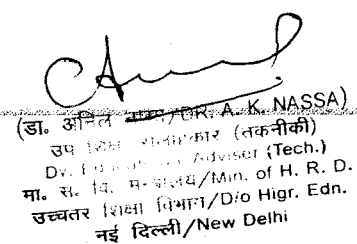 (डा. अनिल /DR. A. K. NASSA)
उप शिक्षा सलाहकार (तकनीकी)
Dy. Educational Adviser (Tech.)
मा. सं. वि. मन्त्रालय/Min. of H. R. D.
उच्चतर शिक्षा विभाग/D/o Higr. Edn.
नई दिल्ली/New Delhi